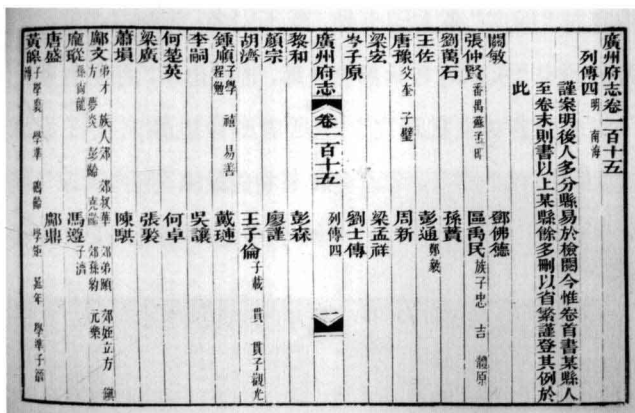 廣州府志卷一百十五
列傳四 明 南海
謹案明後人多分縣易於檢閱今惟卷首書某縣人
至卷末則書以上某縣餘多刪以省繁謹登其例於
此
關敏 鄧佛德
張仲賢 番禺蘇孟 區禹民 族子忠 吉
劉萬石 孫蕡
王佐 彭通
唐豫 父奎 子璧 周新
梁宏 梁孟祥
岑子原 劉士傳
廣州府志 卷一百十五 列傳四 一
黎和 彭森
顏宗 廖謹
胡濟 王子倫 子載 貫 貫子觀光
鍾順 子學 禧 易善 程勉 戴璉
李嗣 吳讓
何楚英 何卓
梁廣 張褧
蕭塤 陳騏
鄺文 弟才 族人郊 郊叔華 郊弟頤 郊姪立方 方 夢炎 彭齡 元樂
龐璁 孫尚龍 馮遵 子濟
唐盛 鄺鼎
黃皞 子學裘 學準 學矩 延年 學準子